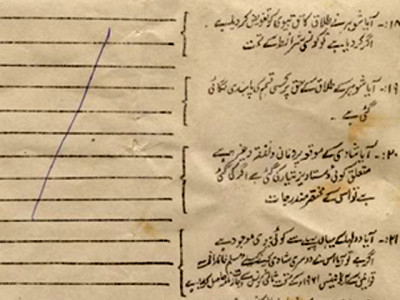 ۱۸:- آیا شوہر نے طلاق کا حق بیوی کو تفویض کر دیا ہے۔
اگر کر دیا ہے تو کونسی شرائط کے تحت
۱۹:- آیا شوہر کے طلاق کے حق پر کسی قسم کی پابندی لگائی
گئی ہے۔
۲۰:- آیا شادی کے موقع پر مہر و نان و نفقہ وغیرہ سے
متعلق کوئی دستاویز تیار کی گئی ہے اگر کی گئی
ہے تو اس کے مختصر مندرجات
۲۱:- آیا دولہا کے یہاں پہلے سے کوئی بیوی موجود ہے
اگر ہے تو آیا اس نے دوسری شادی کرنے کے لئے مسلم خاندانی
قوانین کے آرڈیننس ۱۹۶۱ء کے تحت